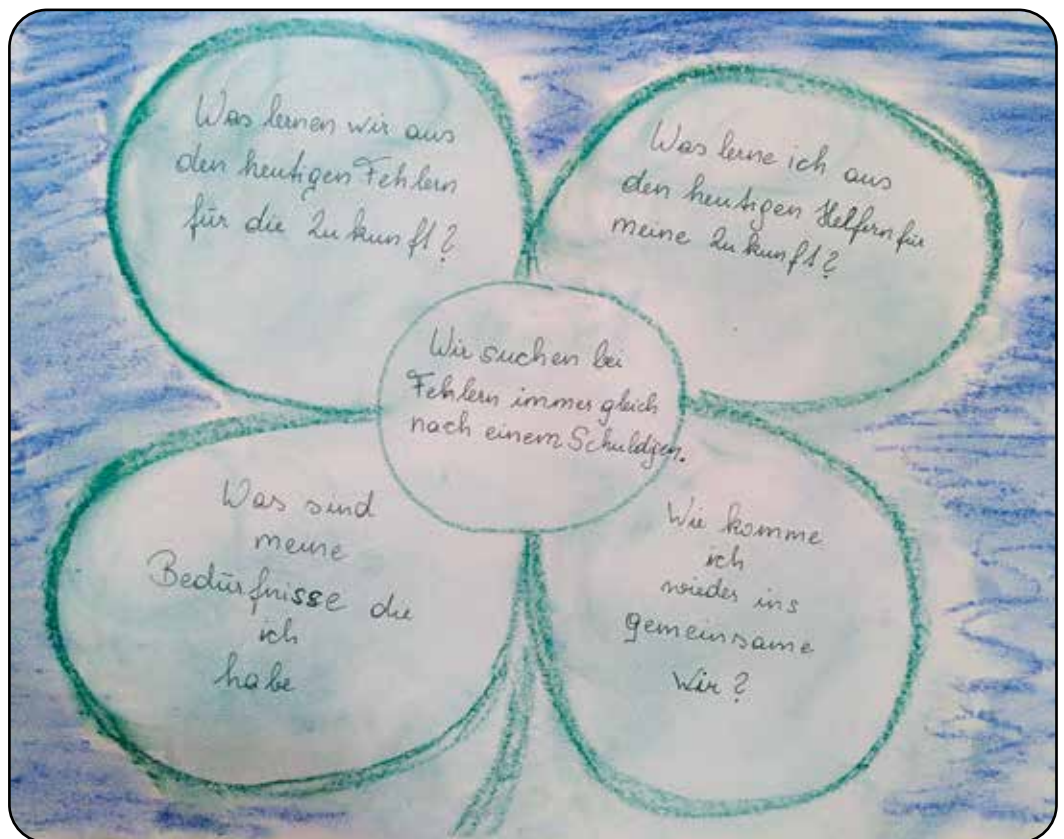 Was lernen wir aus
den heutigen Fehlern
für die Zukunft?
Was lerne ich aus
den heutigen Helfern für
meine Zukunft?
Wir suchen bei
Fehlern immer gleich
nach einem Schuldigen.
Was sind
meine
Bedürfnisse die
ich
habe
Wie komme
ich
wieder ins
gemeinsame
Wir?